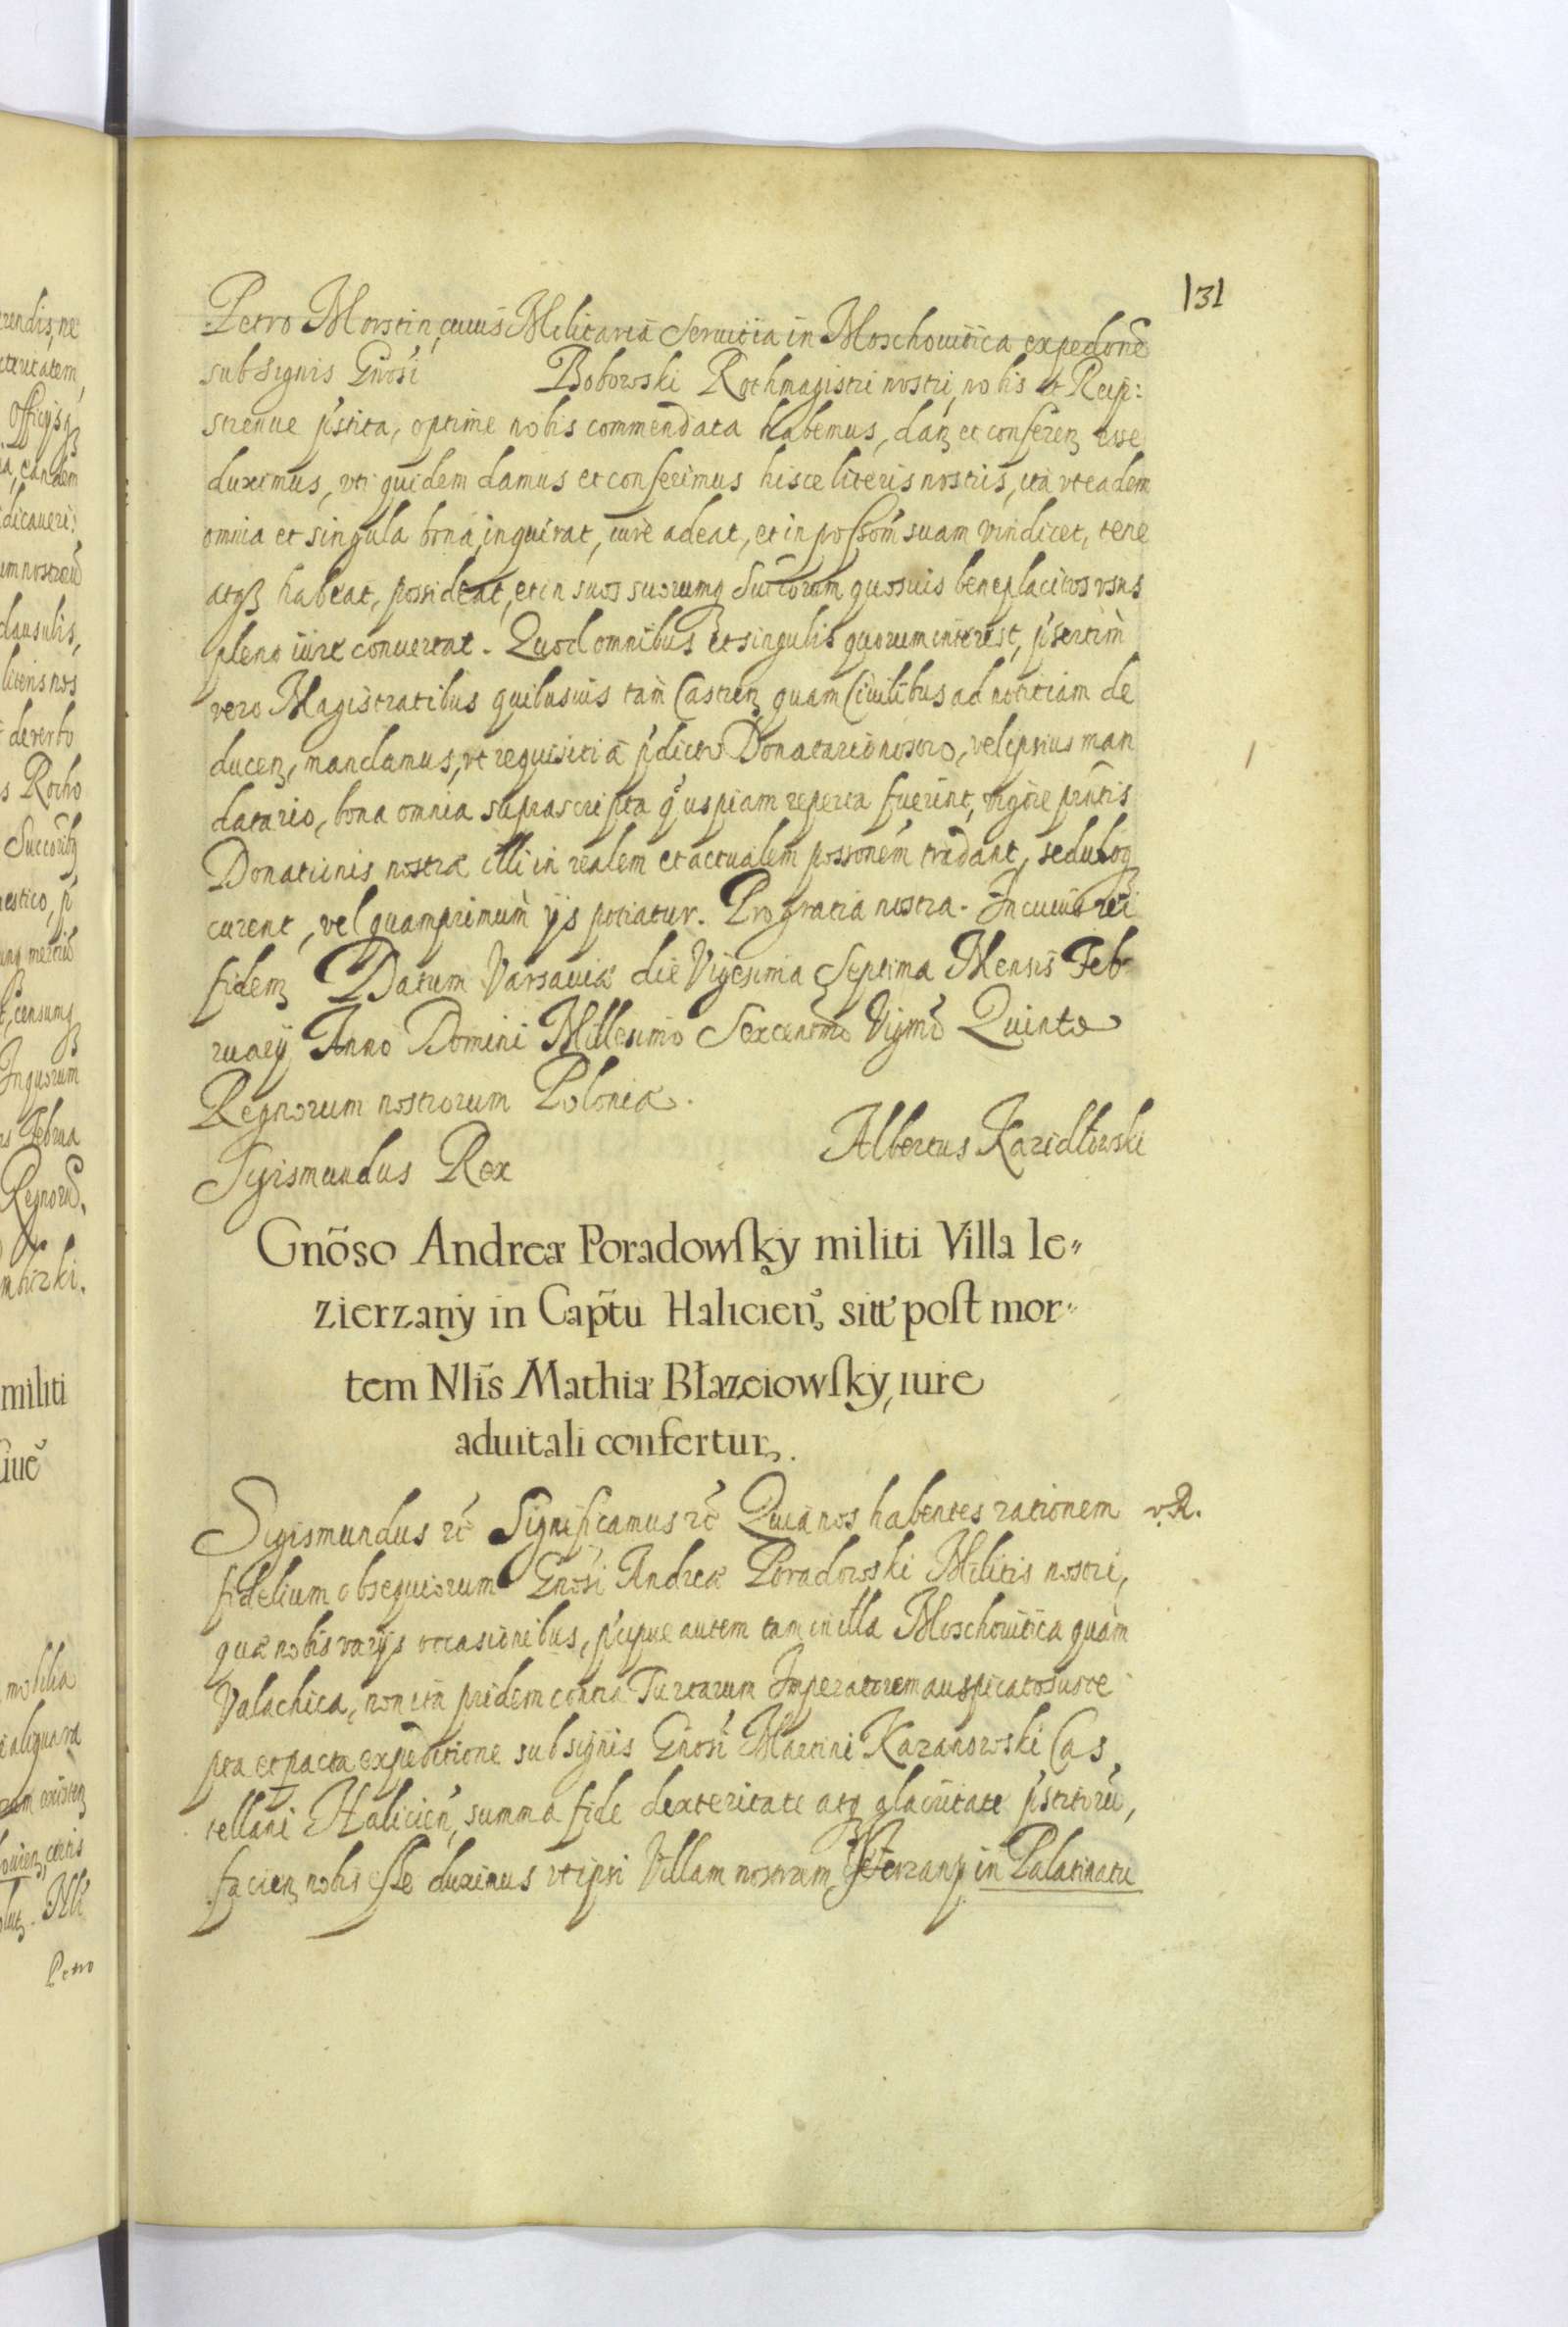 131
Petro Morstin, cuius Militaria Seruitia in Moschouitica expedōne
sub signis Gnōsi Bobowski Rothmagistri nostri, nobis et Reip:
strenue p̄stita, optime nobis commendata habemus, danꝫ et conferenꝫ esse
duximus, vti quidem damus et conferimus hisce literis nostris, ita vt eadem
omnia et singula bona, inquirat, iure adeat, et in possōm suam vindicet, tene
atqꝫ habeat, possideat, et in suos suorumqꝫ Succorum quosuis beneplacitos vsus
pleno iure conuertat. Quod omnibus et singulis quorum interest, p̄sertim
vero Magistratibus quibusuis tam Castrenꝫ quam Ciuilibus ad notitiam de
ducenꝫ, mandamus, vt requisiti a p̄dicto Donatario nostro, vel ipsius man
datario, bona omnia suprascripta q̄ uspiam reperta fuerint, vigore pn̄tis
Donationis nostræ illi in realem et actualem possonem tradant, seduloqꝫ
curent, vel quamprimum ijs potiatur. Pro gratia nostra. In cuius rei
fidemꝫ Datum Varsauiæ die Vigesima Septima Mensis Feb
ruarij Anno Domini Millesimo Sexcenmo Vigmo Quinto
Regnorum nostrorum Poloniæ.
Albertus Kazidłowski
Sigismundus Rex
Gnōso Andreæ Poradowsky militi Villa Ie„
zierzany in Cap̄tu Halicien̄, sitt' post mor„
tem Nlīs Mathiæ Błazeiowsky, iure
aduitali confertur.
Sigismundus etc̄ Significamus etc̄ Quia nos habentes rationem v. R.
fidelium obsequiorum Gnōsi Andreæ Poradowski Militis nostri,
quæ nobis varijs occasionibus, p̄cipue autem tam in illa Moschouitica quam
Valachica, non ita pridem contra Turcarum Imperatorem auspicato susce
pta et pacta expeditione sub signis Gnōsi Martini Kazanowski Cas
tellani Halicien̄, summa fide dexteritate atqꝫ alacritate p̄stitoru,
facienꝫ nobis esse duximus vt ipsi Villam nostram in Palatinatu